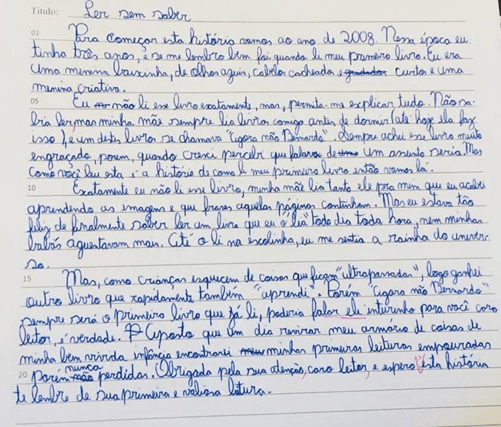 Título: Ler sem saber
01 Para começar esta história vamos ao ano de 2008. Nessa época eu
tinha três anos, e se me lembro bem foi quando li meu primeiro livro. Eu era
uma menina baixinha, de olhos azuis, cabelo cacheado e curto e uma
menina criativa.
05 Eu não li esse livro exatamente, mas, permita-me explicar tudo. Não sa-
bia ler, mas minha mãe sempre lia livros comigo antes de dormir (até hoje ela faz
isso), e um destes livros se chamava "Agora não Bernardo". Sempre achei esse livro muito
engraçado, porem, quando cresci percebi que falava de um assunto seria. Mas
como você leu esta, é a história de como li meu primeiro livro então vamos lá.
10 Exatamente eu não li esse livro, minha mãe lia tanto ele pra mim que eu acabei
aprendendo as imagens e que frases aquelas páginas continham. Mas eu estava tão
feliz de finalmente saber ler um livro que eu o "lia" todo dia toda hora, nem minhas
babás aguentavam mais. Até o li na escolinha, eu me sentia a rainha do univer-
so.
15 Mas, como crianças esquecem de coisas que ficam "ultrapassadas", logo ganhei
outro livro que rapidamente também "aprendi". Porém "Agora não Bernardo"
sempre será o primeiro livro que já li, poderia falar ele inteirinho para você caro
leitor, é verdade. Aposto que um dia revirar meu armário de coisas de
minha bem vivida infância encontrarei minhas primeiras leituras empoeiradas
20 porém nunca perdidas. Obrigada pela sua atenção, caro leitor, e espero esta história
te lembre de sua primeira e valiosa leitura.